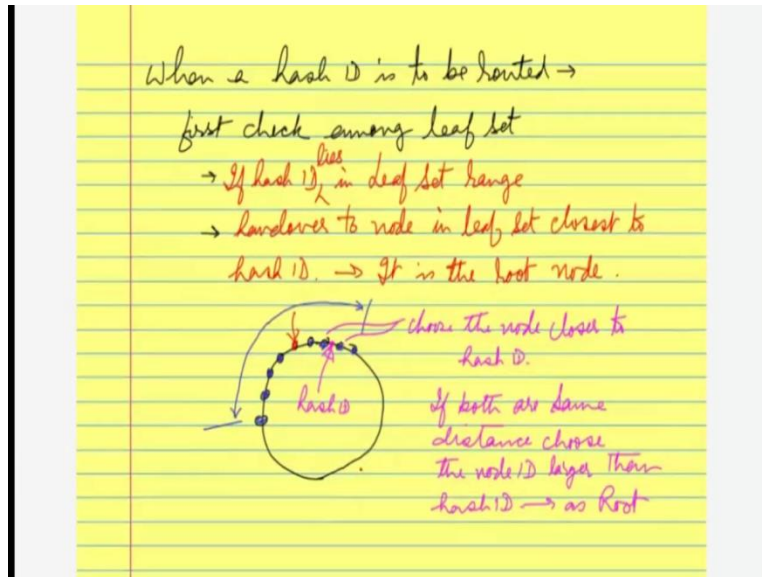 When a hash ID is to be routed →
first check among leaf set
→ If hash ID lies in Leaf Set range
→ handover to node in leaf set closest to
hash ID. → It is the root node.
choose the node closer to
hash ID.
hash ID
If both are same
distance choose
the node ID larger than
hash ID → as Root